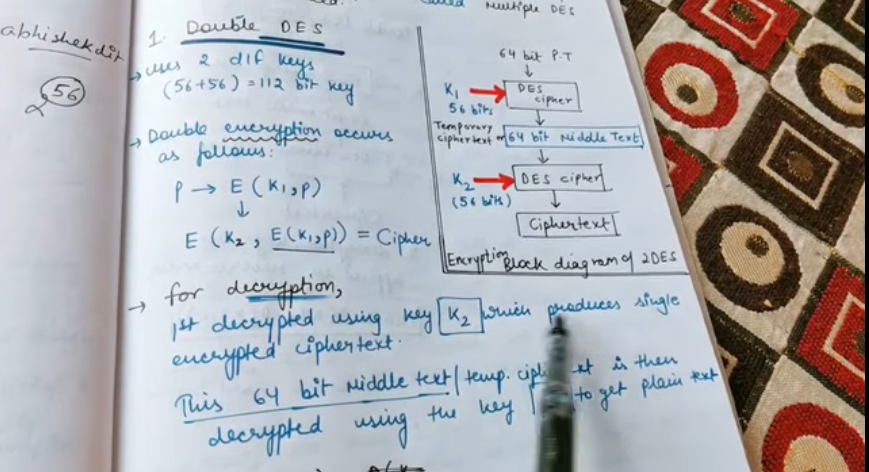 called Multiple DES
abhishekdit
2 56
1. Double DES
→ uses 2 dif keys
(56+56) = 112 bit key
→ Double encryption occurs
as follows:
P → E (K1,P)
↓
E (K2, E(K1,P)) = Cipher
64 bit P.T
↓
K1 → DES
56 bits cipher
↓
Temporary
ciphertext or 64 bit Middle Text
↓
K2 → DES cipher
(56 bits)
↓
Ciphertext
Encryption Block diagram of 2DES
→ for decryption,
1st decrypted using key K2 which produces single
encrypted ciphertext.
This 64 bit Middle text / temp. is then
decrypted using the key to get plain text